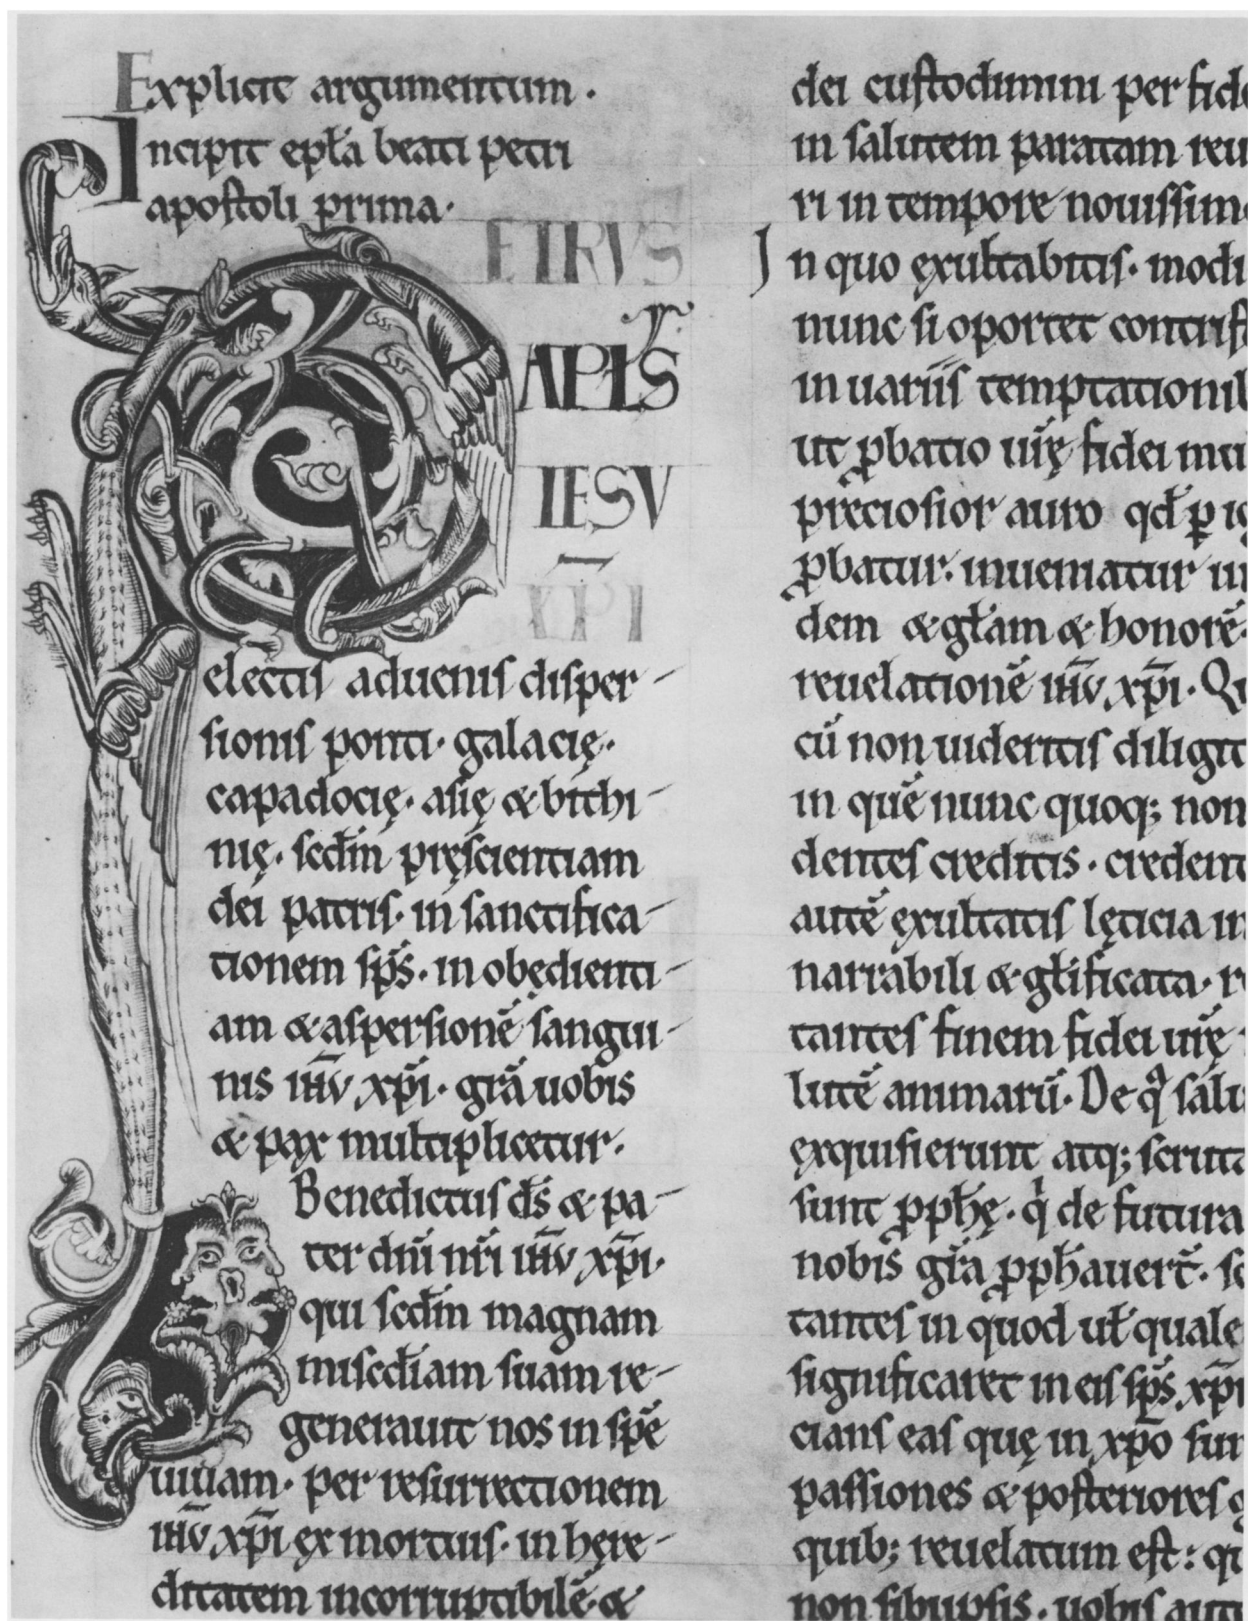 Explicit argumentum.
Incipit epła beati petri
apostoli prima.
PETRVS
APŁS
IESV
XP̄I
electis aduenis disper-
sionis ponti. galacię.
capadocię. asię & bithi-
nię. scđm pręscientiam
dei patris. in sanctifica-
tionem sp̄s. in obędienti-
am & aspersionē sangui-
nis ih̄v xp̄i. grā uobis
& pax multiplicetur.
Benedictus ds̄ & pa-
ter dn̄i nr̄i ih̄v xp̄i.
qui scđm magnam
miscđiam suam re-
generauit nos in spē
uiuam. per resurrectionem
ih̄v xp̄i ex mortuis. in hęre-
ditatem incorruptibilē &
dei custodimini per fide
in salutem paratam reu
ri in tempore nouissimo
In quo exultabitis. modi
nunc si oportet contrist
in uariis temptationib
ut ꝓbatio ur̄ę fidei mu
preciosior auro qđ ꝑ ig
ꝓbatur. inueniatur in
dem & głam & honorē.
reuelationē ih̄v xp̄i. Qu
cū non uideritis diligit
in quē nunc quoq; non
dentes creditis. credent
autē exultatis lęticia in
narrabili & głificata. re
tantes finem fidei ur̄ę
lutē animarū. De qᵃ salu
exquisierunt atq; scruta
sunt ꝓpħę. qⁱ de futura
nobis grā ꝓpħauer̄t. sc
tantes in quod uł quale
significaret in eis sp̄s xp̄i
cians eas quę in xp̄o sun
passiones & posteriores g
quib; reuelatum est: qi
non sibiipsis. uobis aut